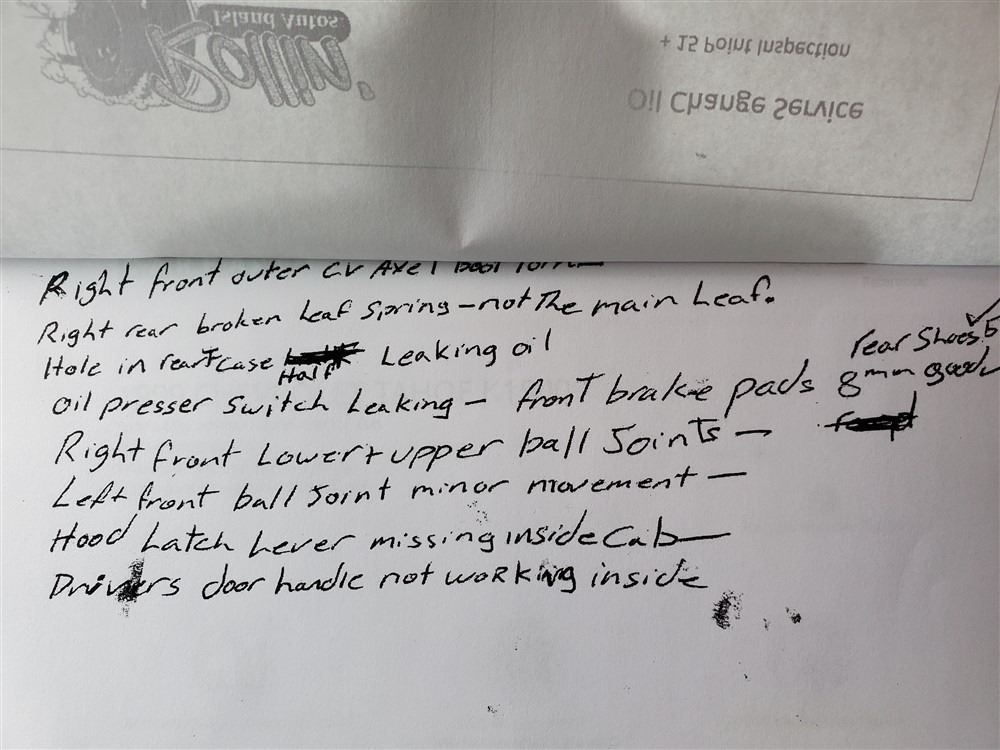 Island Autos
Rollin'
+ 15 Point Inspection
Oil Change Service
Right front outer CV Axel boot torn—
Right rear broken Leaf Spring – not The main Leaf.
Hole in rear T case Half Leaking oil
rear Shoes 5
Oil presser Switch Leaking – front brake pads 8mm good
Right front Lower + upper ball Joints –
Left front ball Joint minor movement –
Hood Latch Lever missing inside Cab –
Drivers door handle not working inside